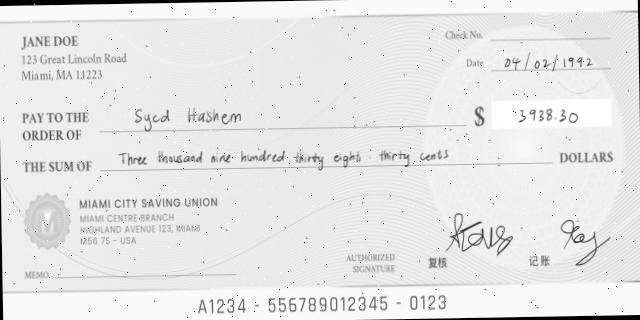 JANE DOE
123 Great Lincoln Road
Miami, MA 11223
Check No.
Date 04/02/1992
PAY TO THE ORDER OF Syed Hashem
$ 3938.30
THE SUM OF Three thousand nine hundred thirty eight thirty cents DOLLARS
MIAMI CITY SAVING UNION
MIAMI CENTRE-BRANCH
HIGHLAND AVENUE 123, MIAMI
M56 7S - USA
MEMO
AUTHORIZED SIGNATURE
复核
记账
A1234 - 556789012345 - 0123